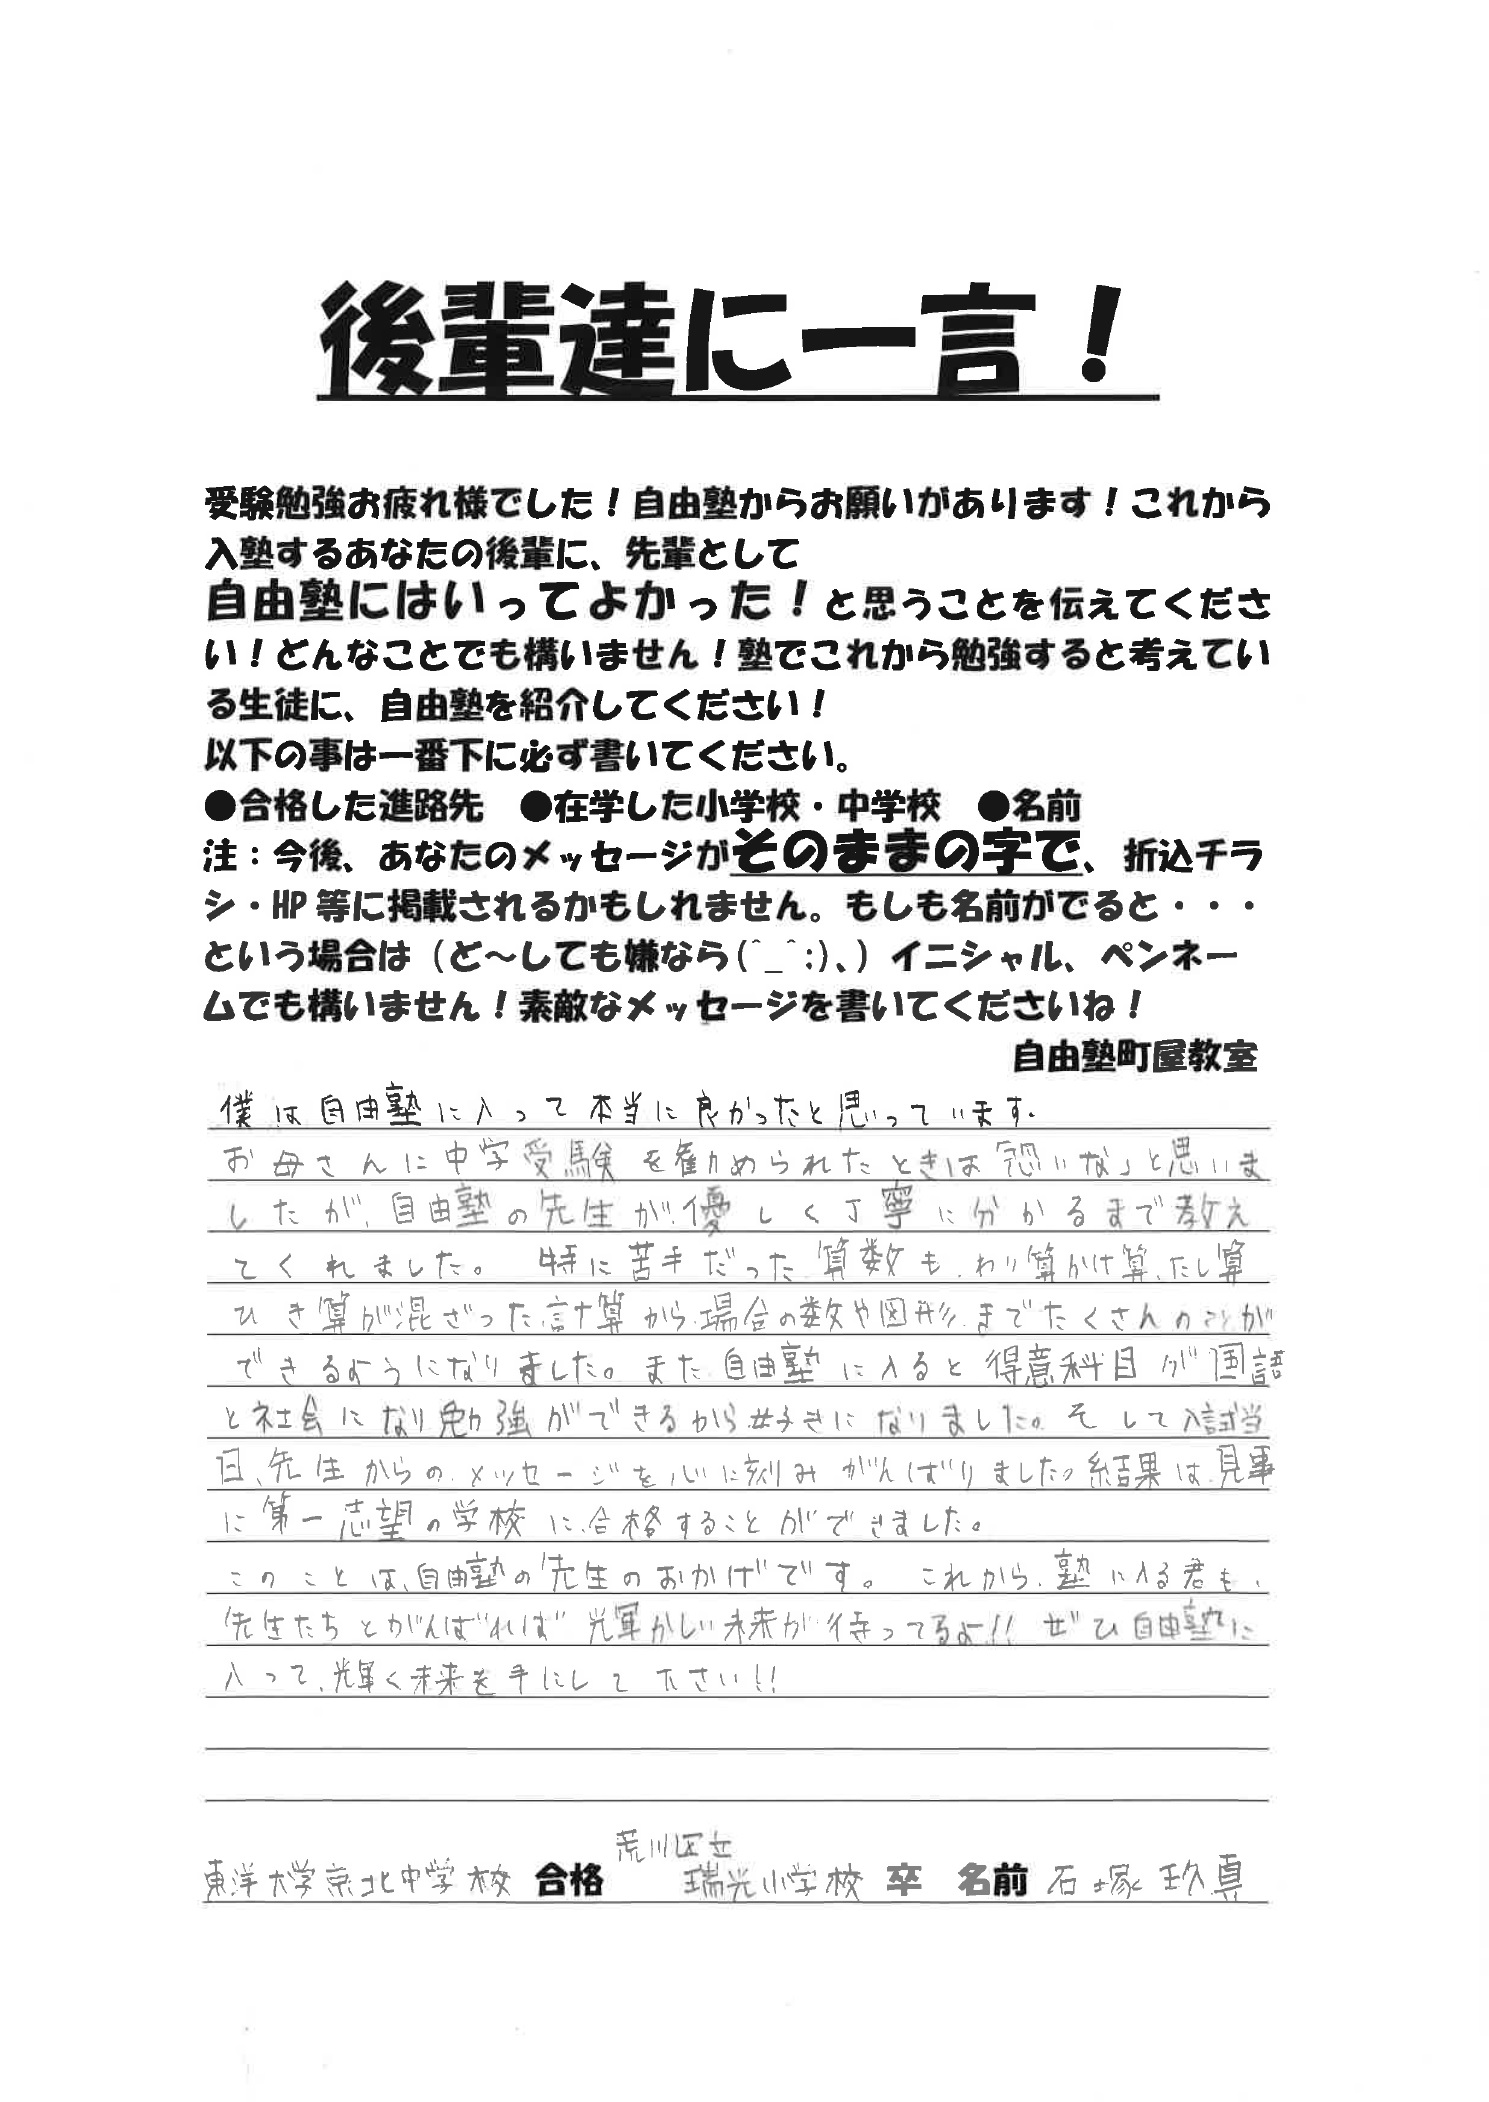 後輩達に一言！
受験勉強お疲れ様でした！自由塾からお願いがあります！これから
入塾するあなたの後輩に、先輩として
自由塾にはいってよかった！と思うことを伝えてくださ
い！どんなことでも構いません！塾でこれから勉強すると考えてい
る生徒に、自由塾を紹介してください！
以下の事は一番下に必ず書いてください。
●合格した進路先　●在学した小学校・中学校　●名前
注：今後、あなたのメッセージがそのままの字で、折込チラ
シ・HP等に掲載されるかもしれません。もしも名前がでると・・・
という場合は（ど～しても嫌なら(^_^:)、）イニシャル、ペンネー
ムでも構いません！素敵なメッセージを書いてくださいね！
自由塾町屋教室
僕は自由塾に入って本当に良かったと思っています。
お母さんに中学受験を勧められたときは「恐いな」と思いま
したが、自由塾の先生が、優しく丁寧に分かるまで教え
てくれました。特に苦手だった算数も、わり算かけ算、たし算
ひき算が混ざった計算から、場合の数や図形、までたくさんのことが
できるようになりました。また、自由塾に入ると得意科目が国語
と社会になり勉強ができるから好きになりました。そして入試当
日、先生からのメッセージを心に刻みがんばりました。結果は、見事
に第一志望の学校に、合格することができました。
このことは、自由塾の先生のおかげです。これから、塾に入る君も、
先生たちとがんばれば光輝かしい未来が待ってるよ!!ぜひ自由塾に
入って、輝く未来を手にして下さい!!
荒川区立
東洋大学京北中学校 合格　瑞光小学校 卒　名前 石塚 玖真